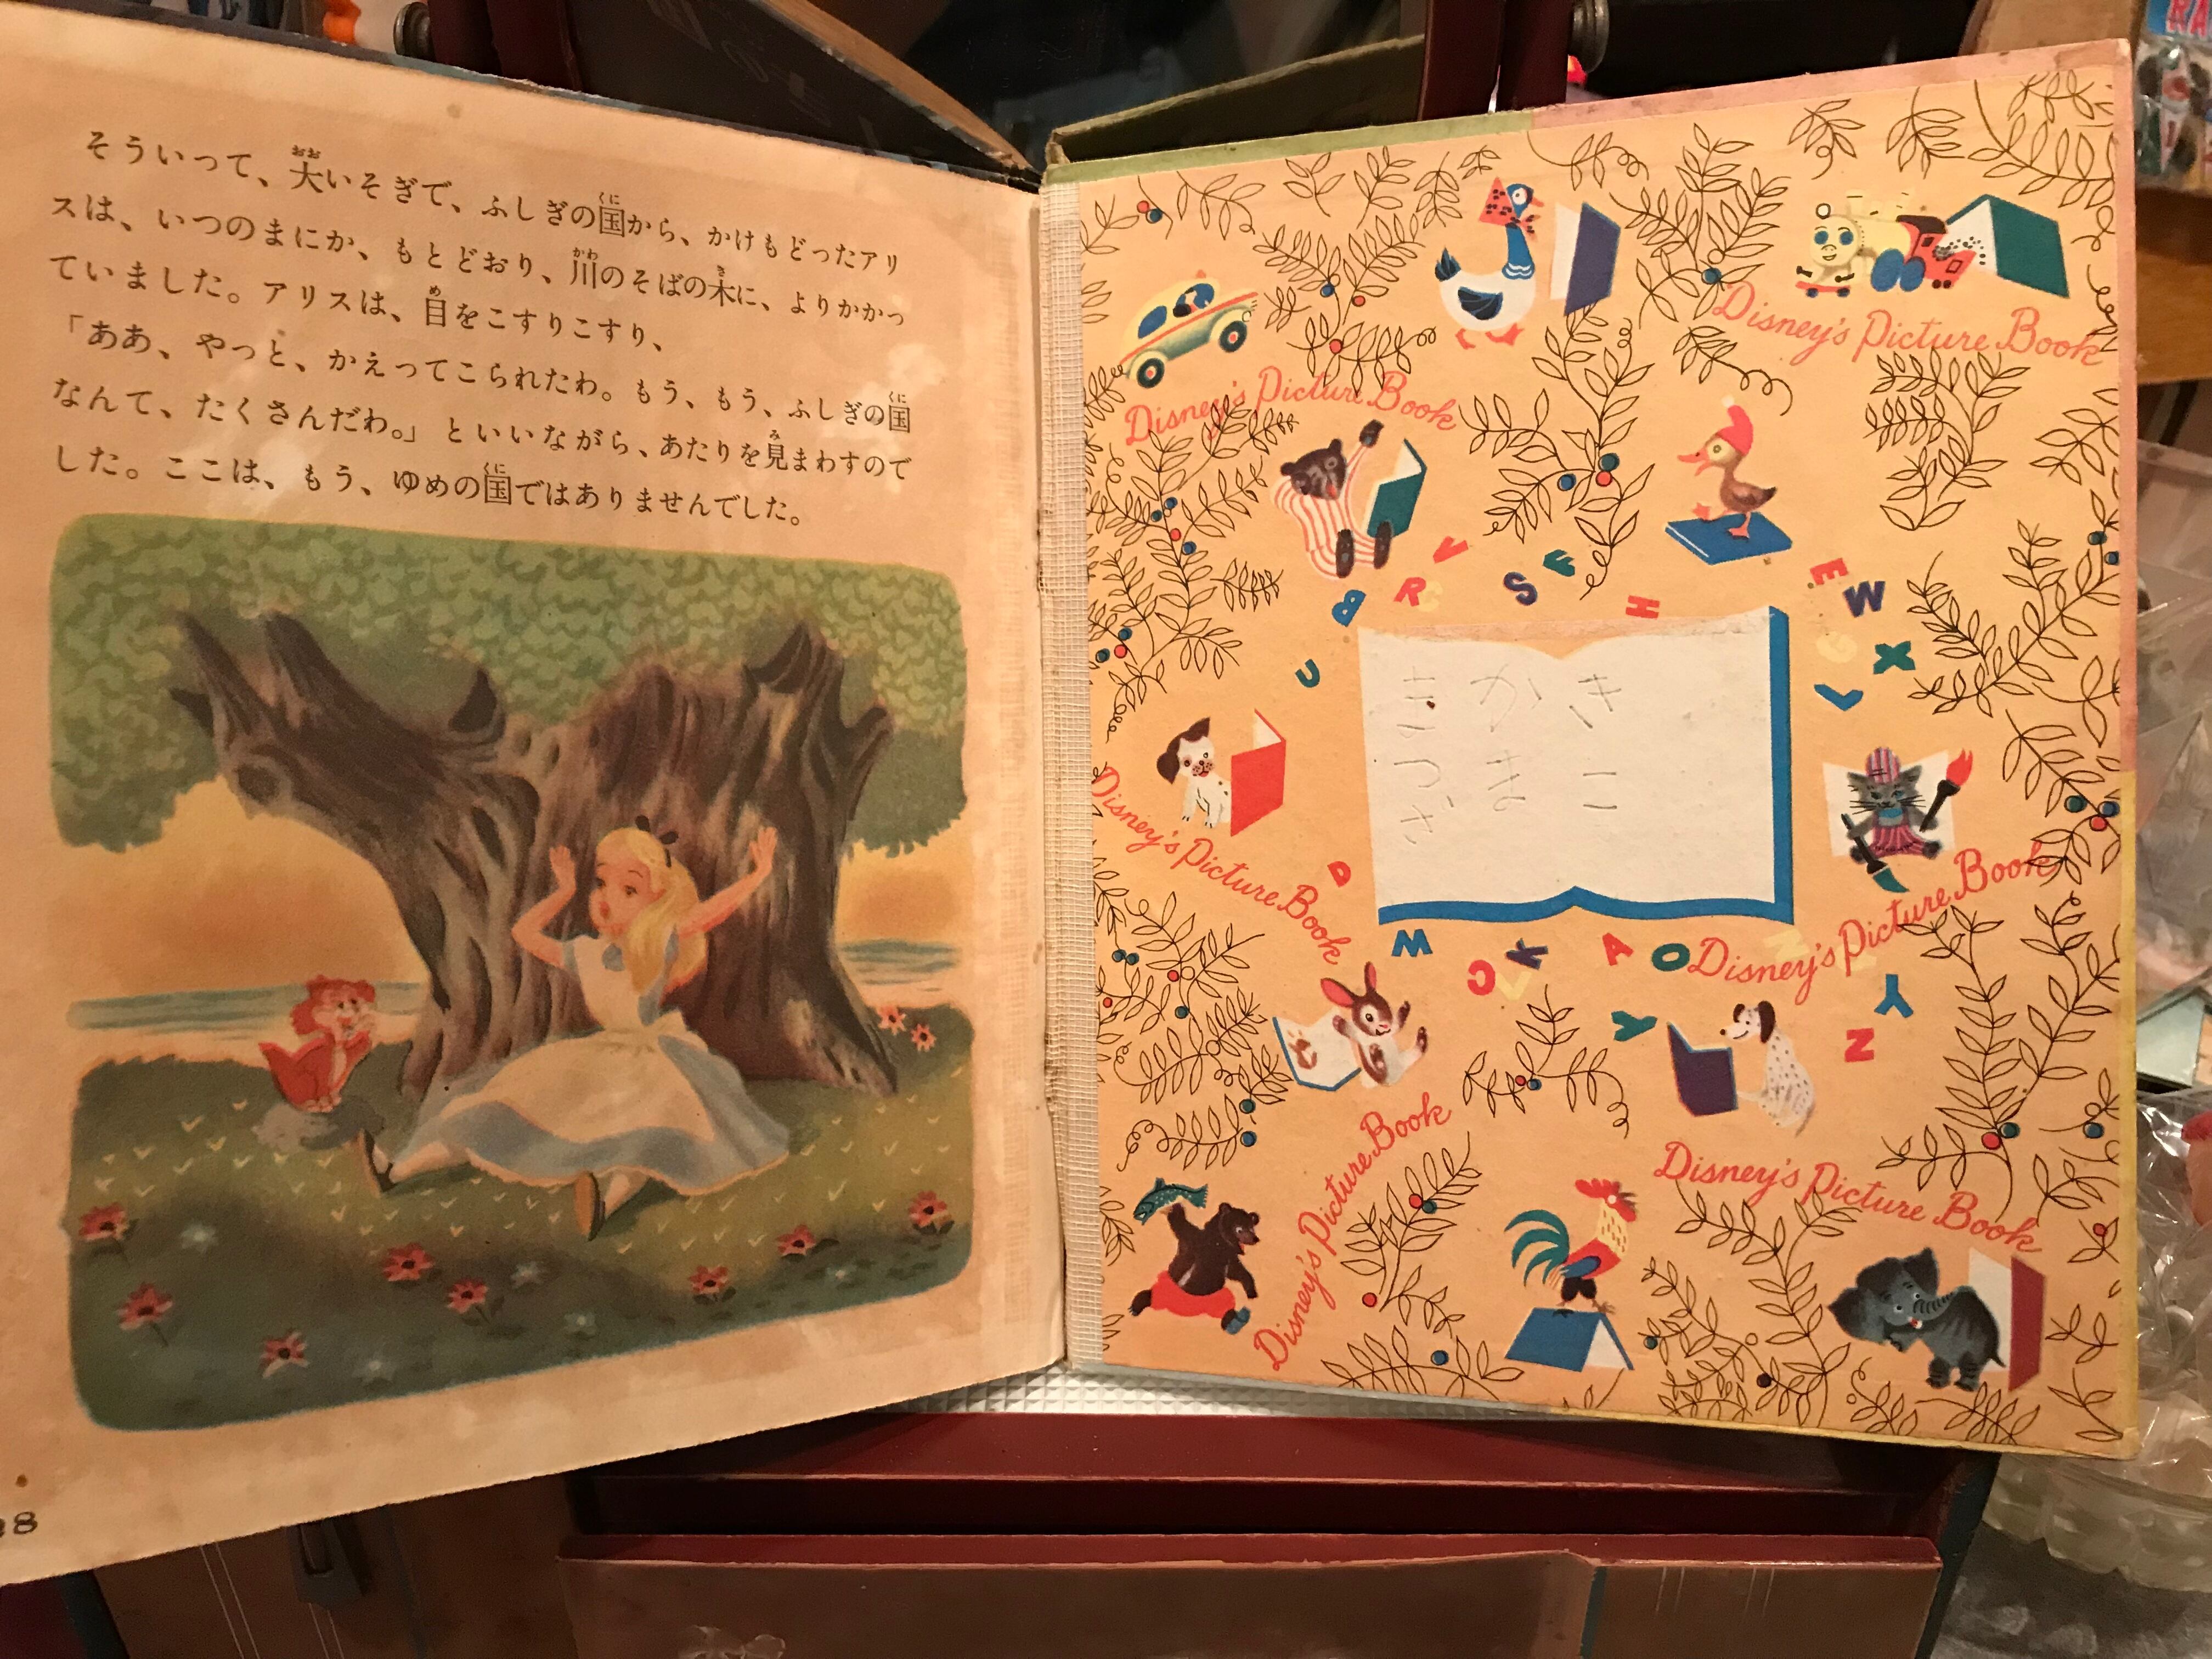 そういって、大いそぎで、ふしぎの国から、かけもどったアリ
スは、いつのまにか、もとどおり、川のそばの木に、よりかかっ
ていました。アリスは、目をこすりこすり、
「ああ、やっと、かえってこられたわ。もう、もう、ふしぎの国
なんて、たくさんだわ。」といいながら、あたりを見まわすので
した。ここは、もう、ゆめの国ではありませんでした。
28
Disney's Picture Book
Disney's Picture Book
V
R
C
B
S
F
H
E
W
G
X
L
U
Disney's Picture Book
D
Disney's Picture Book
M
C
V
K
A
O
Disney's Picture Book
N
Y
Y
Z
Disney's Picture Book
RA